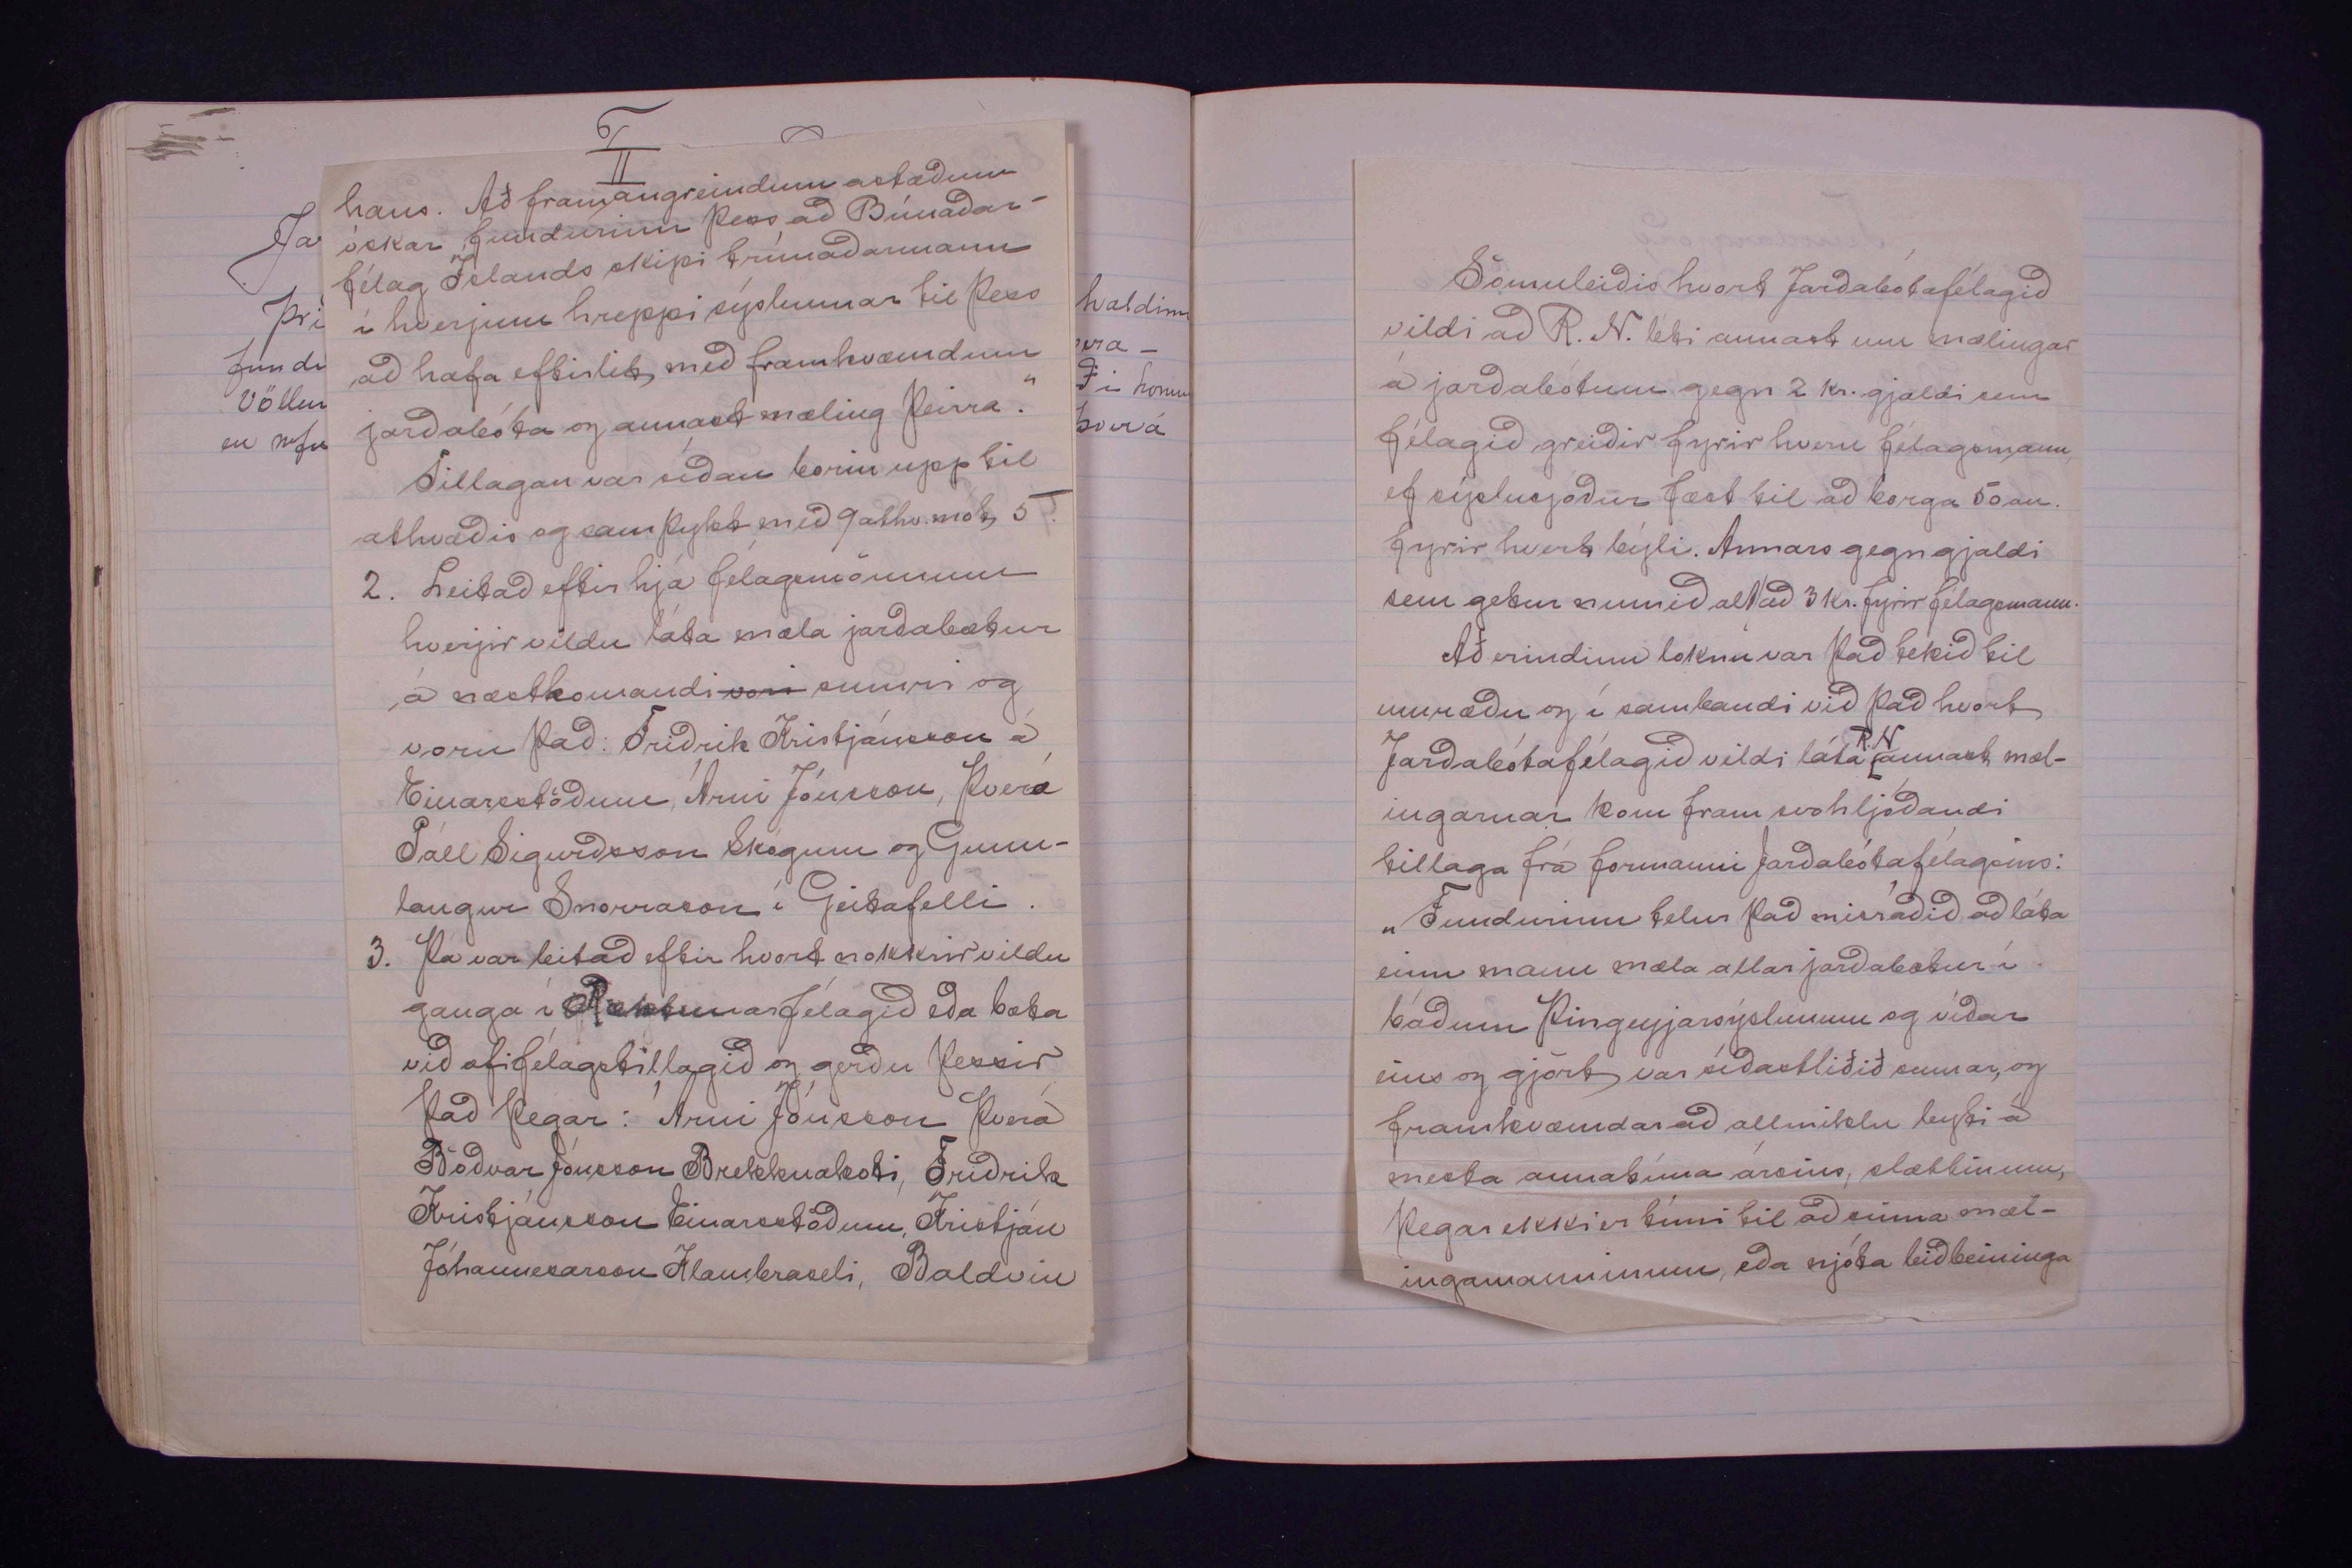 hans. Að framangreindum ástæðum
óskar fundurinn þess, að Búnaðar-
félag Íslands skipi trúnaðarmann
í hverjum hreppi sýslunnar til þess
að hafa eftirlit með framkvæmdum
jarðabóta og annast mæling þeirra."
Tillagan var síðan borin upp til
atkvæðis og samþykt með 9 atkv. mót 5.
2. Leitað eftir hjá félagsmönnum
hverjir vildu láta mæla jarðabætur
á næstkomandi vori sumri og
voru það: Friðrik Kristjánsson á
Einarsstöðum, Árni Jónsson, Þverá
Páll Sigurðsson Skógum og Gunn-
laugur Snorrason í Geitafelli.
3. Þá var leitað eftir hvort nokkrir vildu
ganga í Ræktunarfélagið eða bæta
við æfifélagstillagið og gerðu þessir
það þegar: Árni Jónsson Þverá
Böðvar Jónsson Brekknakoti, Friðrik
Kristjánsson Einarsstöðum, Kristján
Jóhannesarson Klambraseli, Baldvin
Ja
Þri
fundi
Völlun
haldinn
ð í honum
Þverá
Sömuleiðis hvort Jarðabótafélagið
vildi að R. N. léti annast um mælingar
á jarðabótum gegn 2 kr. gjaldi sem
félagið greiðir fyrir hvern félagsmann,
ef sýslusjóður fæst til að borga 50 au.
fyrir hvert býli. Annars gegn gjaldi
sem getur numið alt að 3 kr. fyrir félagsmann.
Að erindinu loknu var það tekið til
umræðu og í sambandi við það hvort
Jarðabótafélagið vildi láta R.N. annast mæl-
ingarnar kom fram svohljóðandi
tillaga frá formanni Jarðabótafélagsins:
„Fundurinn telur það misráðið að láta
einn mann mæla allar jarðabætur í
báðum Þingeyjarsýslunum og víðar
eins og gjört var síðastliðið sumar, og
framkvæmdar að allmiklu leyti á
mesta annatíma ársins, slættinum,
þegar ekki er tími til að sinna mæl-
ingamanninum, eða njóta leiðbeininga